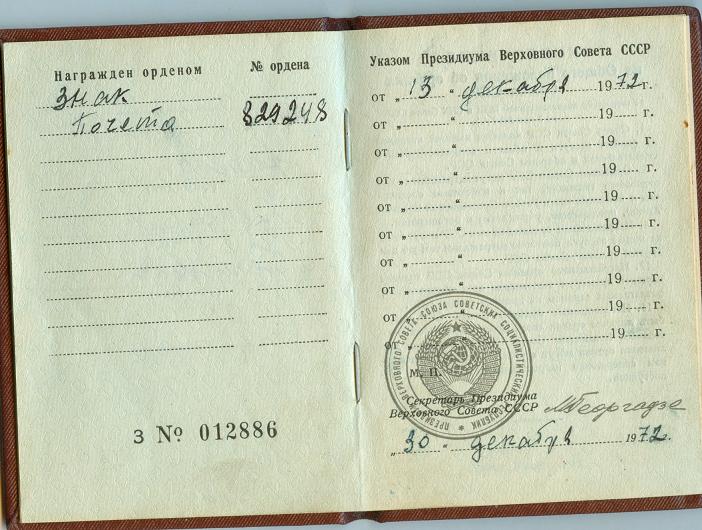 Награжден орденом № ордена
Знак
Почета 829248
З № 012886
Указом Президиума Верховного Совета СССР
от „13“ декабря 1972 г.
от „ “ 19 г.
от „ “ 19 г.
от „ “ 19 г.
от „ “ 19 г.
от „ “ 19 г.
от „ “ 19 г.
от „ “ 19 г.
от „ “ 19 г.
от „ “ 19 г.
М. П.
Секретарь Президиума
Верховного Совета СССР МГеоргадзе
„30“ декабря 1972 г.
ПРЕЗИДИУМ ВЕРХОВНОГО СОВЕТА СОЮЗА СОВЕТСКИХ СОЦИАЛИСТИЧЕСКИХ РЕСПУБЛИК